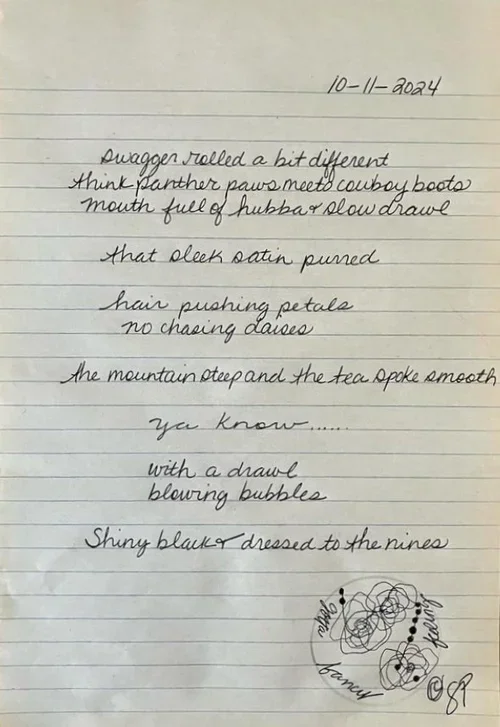 10-11-2024
swagger rolled a bit different
think panther paws meets cowboy boots
mouth full of hubba & slow drawl
that sleek satin purred
hair pushing petals
no chasing daises
the mountain steep and the tea spoke smooth
ya know......
with a drawl
blowing bubbles
Shiny black & dressed to the nines
gotta
fancy
feeling
©